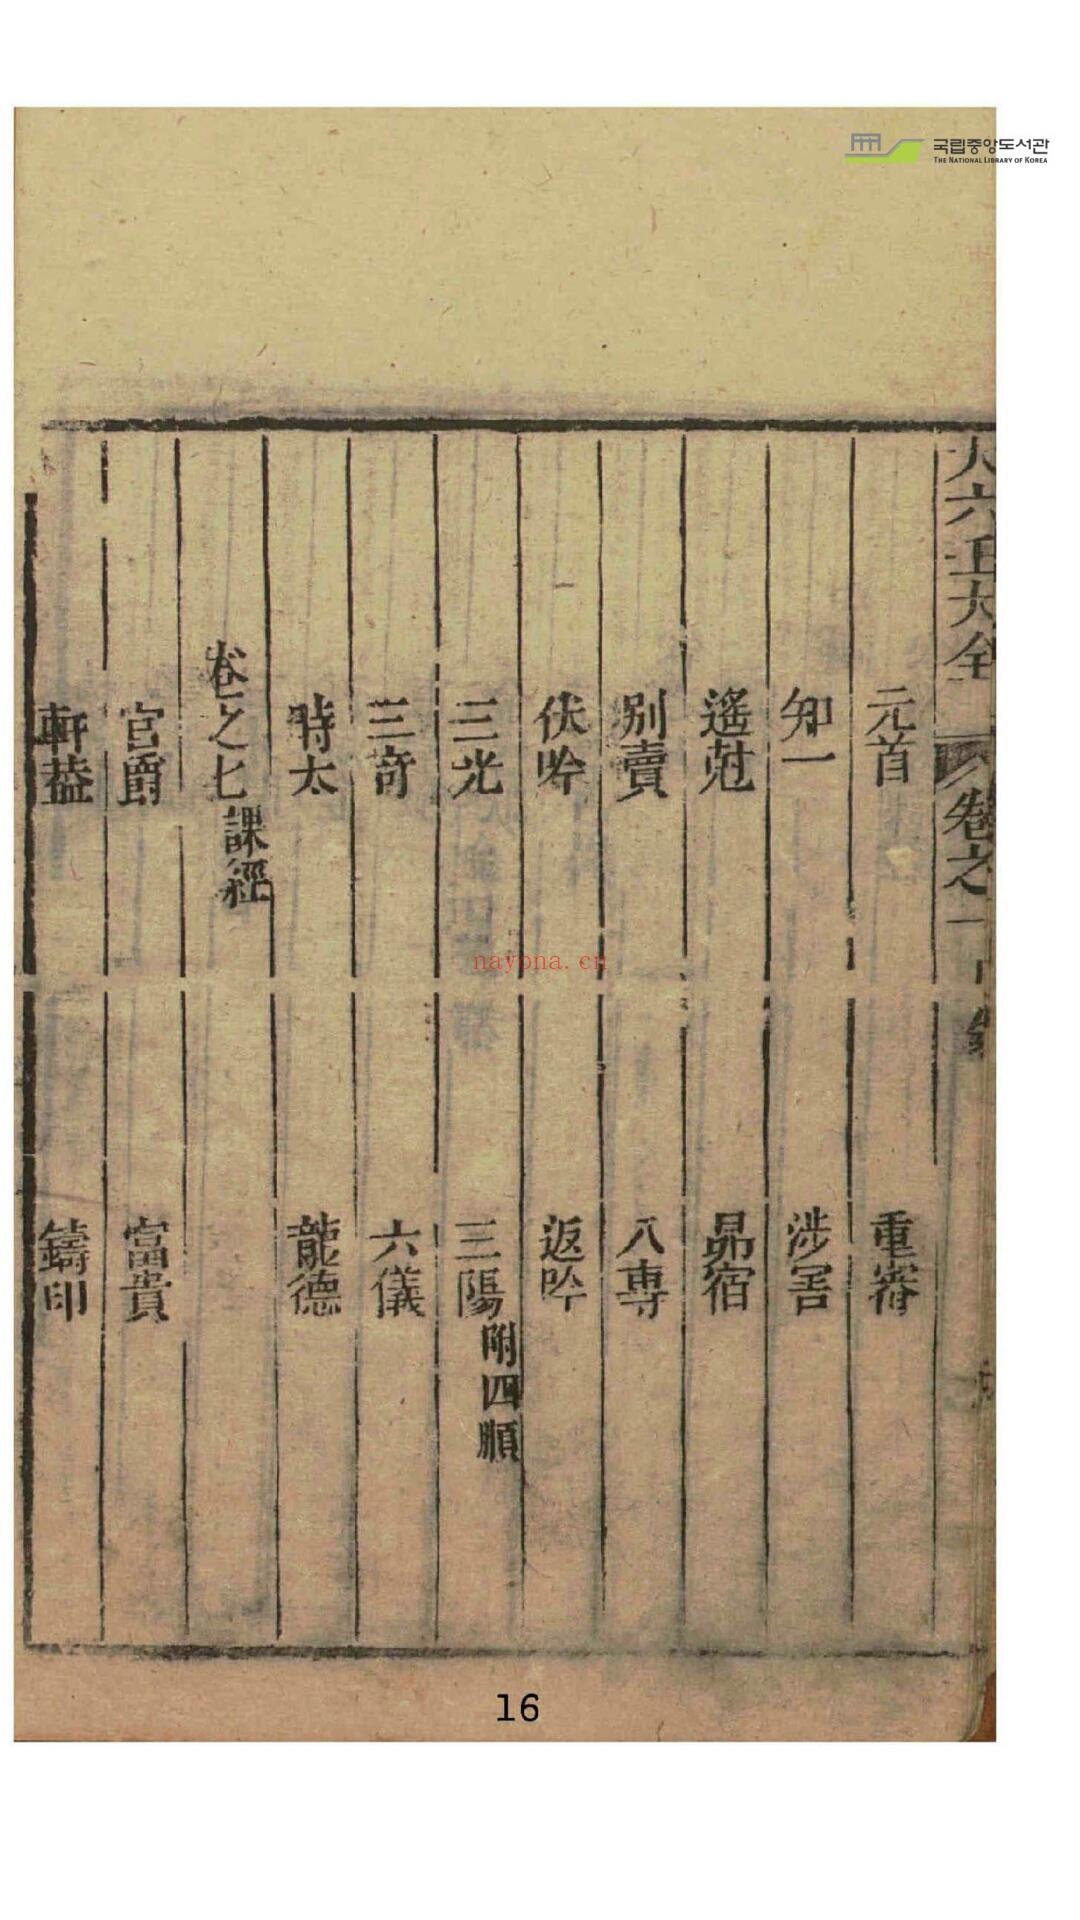 국립중앙도서관
THE NATIONAL LIBRARY OF KOREA
大六壬大全 卷之一 目錄
元首 重審
知一 涉害
遙尅 昴宿
別責 八専
伏吟 返吟
三光 三陽附四順
三竒 六儀
時太 龍德
卷之七課經
官爵 富貴
軒葢 鑄印
nayona.cn
16